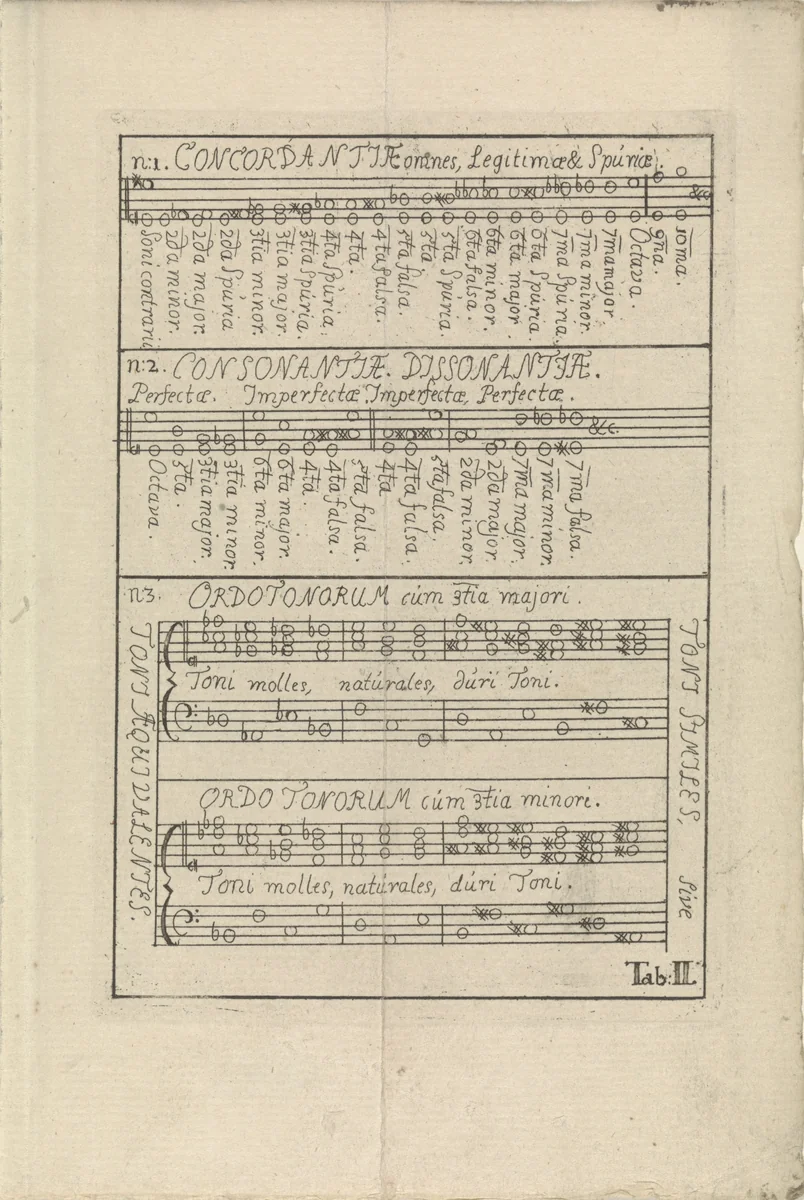 n:1. CONCORDANTIÆ omnes, Legitimæ & Spúriæ.
&c
Soni contrarii
2da minor.
2da major.
2da Spúria
3tia minor.
3tia major.
3tia Spúria.
4ta Spúria.
4ta.
4ta falsa.
5ta falsa.
5ta
5ta Spúria.
6ta falsa.
6ta minor.
6ta major.
6ta Spúria.
7ma Spúria.
7ma minor.
7ma major.
Octava.
9na.
10ma.
n:2. CONSONANTIÆ. DISSONANTIÆ.
Perfectæ. Imperfectæ. Imperfectæ, Perfectæ.
&c.
Octava.
5ta.
3tia major.
3tia minor.
6ta minor.
6ta major.
4ta.
4ta falsa.
5ta falsa.
4ta
4ta falsa.
5ta falsa.
2da minor.
2da major.
7ma major.
7ma minor.
7ma falsa.
n:3. ORDO TONORUM cúm 3tia majori.
Toni molles, natúrales, dúri Toni.
ORDO TONORUM cúm 3tia minori.
Toni molles, natúrales, dúri Toni.
TONI ÆQUIVALENTES.
TONI SIMILES, sive
Tab: II.